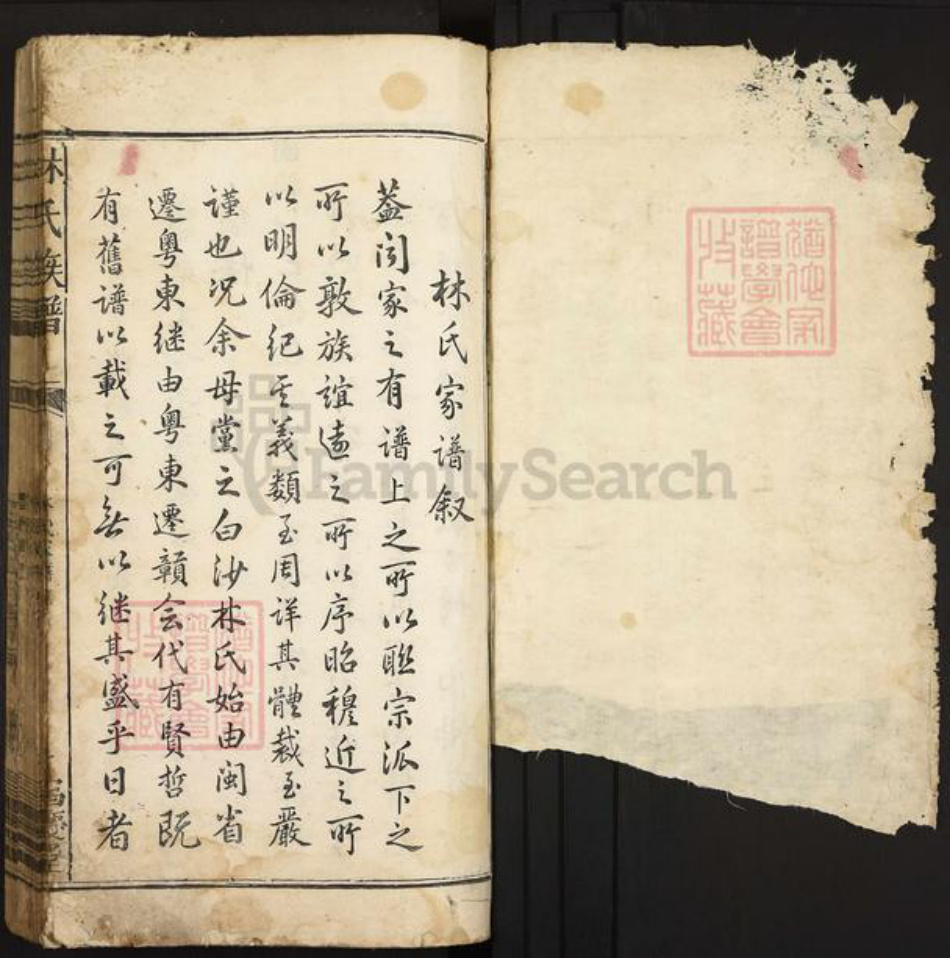 林氏家譜叙
葢闻家之有譜上之所以聯宗派下之
所以敦族誼遠之所以序昭穆近之所
以明倫紀其義類至周詳其體裁至嚴
謹也况余母黨之白沙林氏始由闽省
遷粤東继由粤東遷贛会代有賢哲既
有舊譜以載之可無以继其盛乎日者
林氏族譜
譜學會
收藏
FamilySearch